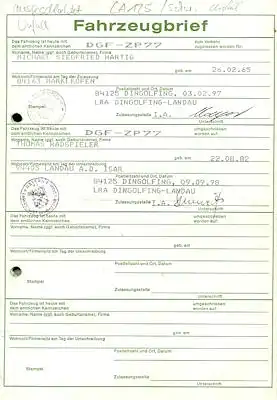 Unfall
Fahrzeugbrief
Das Fahrzeug ist heute mit dem amtlichen Kennzeichen
DGF-ZP77
zum Verkehr zugelassen worden für
Vorname, Name (ggf. auch Geburtsname), Firma
MICHAEL SIEGFRIED HARTIG
geb. am
26.02.65
Wohnort/Firmensitz am Tag der Zulassung
84163 MARKLKOFEN
Postleitzahl und Ort, Datum
84125 DINGOLFING, 03.02.97
LRA DINGOLFING-LANDAU
Zulassungsstelle I.A.
Unterschrift
Das Fahrzeug ist heute mit dem amtlichen Kennzeichen
DGF-ZP77
umgeschrieben worden für
Vorname, Name (ggf. auch Geburtsname), Firma
THOMAS RADSPIELER
geb. am
22.08.82
Wohnort/Firmensitz am Tag der Umschreibung
94405 LANDAU A.D. ISAR
Postleitzahl und Ort, Datum
84125 DINGOLFING, 09.09.98
LRA DINGOLFING-LANDAU
Zulassungsstelle I.A.
Unterschrift
Das Fahrzeug ist heute mit dem amtlichen Kennzeichen
umgeschrieben worden auf
Vorname, Name (ggf. auch Geburtsname), Firma
geb. am
Wohnort/Firmensitz am Tag der Umschreibung
Postleitzahl und Ort, Datum
Zulassungsstelle
Unterschrift
Das Fahrzeug ist heute mit dem amtlichen Kennzeichen
umgeschrieben worden auf
Vorname, Name (ggf. auch Geburtsname), Firma
geb. am
Wohnort/Firmensitz am Tag der Umschreibung
Postleitzahl und Ort, Datum
Zulassungsstelle
Unterschrift